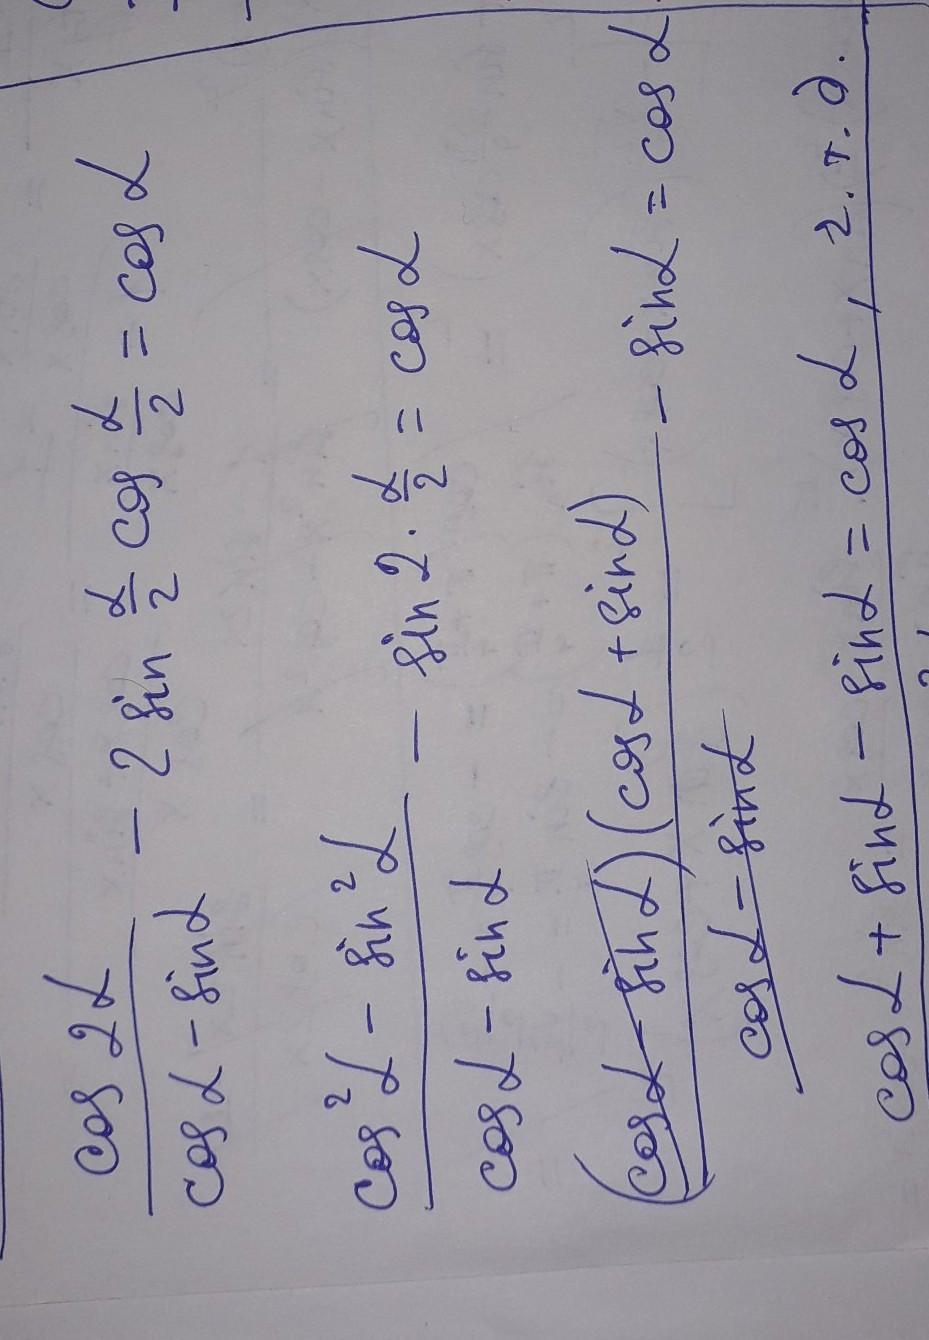 cos 2α / cos α - sin α - 2 sin α/2 cos α/2 = cos α
cos² α - sin² α / cos α - sin α - sin 2 · α/2 = cos α
(cos α - sin α)(cos α + sin α) / cos α - sin α - sin α = cos α
cos α + sin α - sin α = cos α, г.т.д.